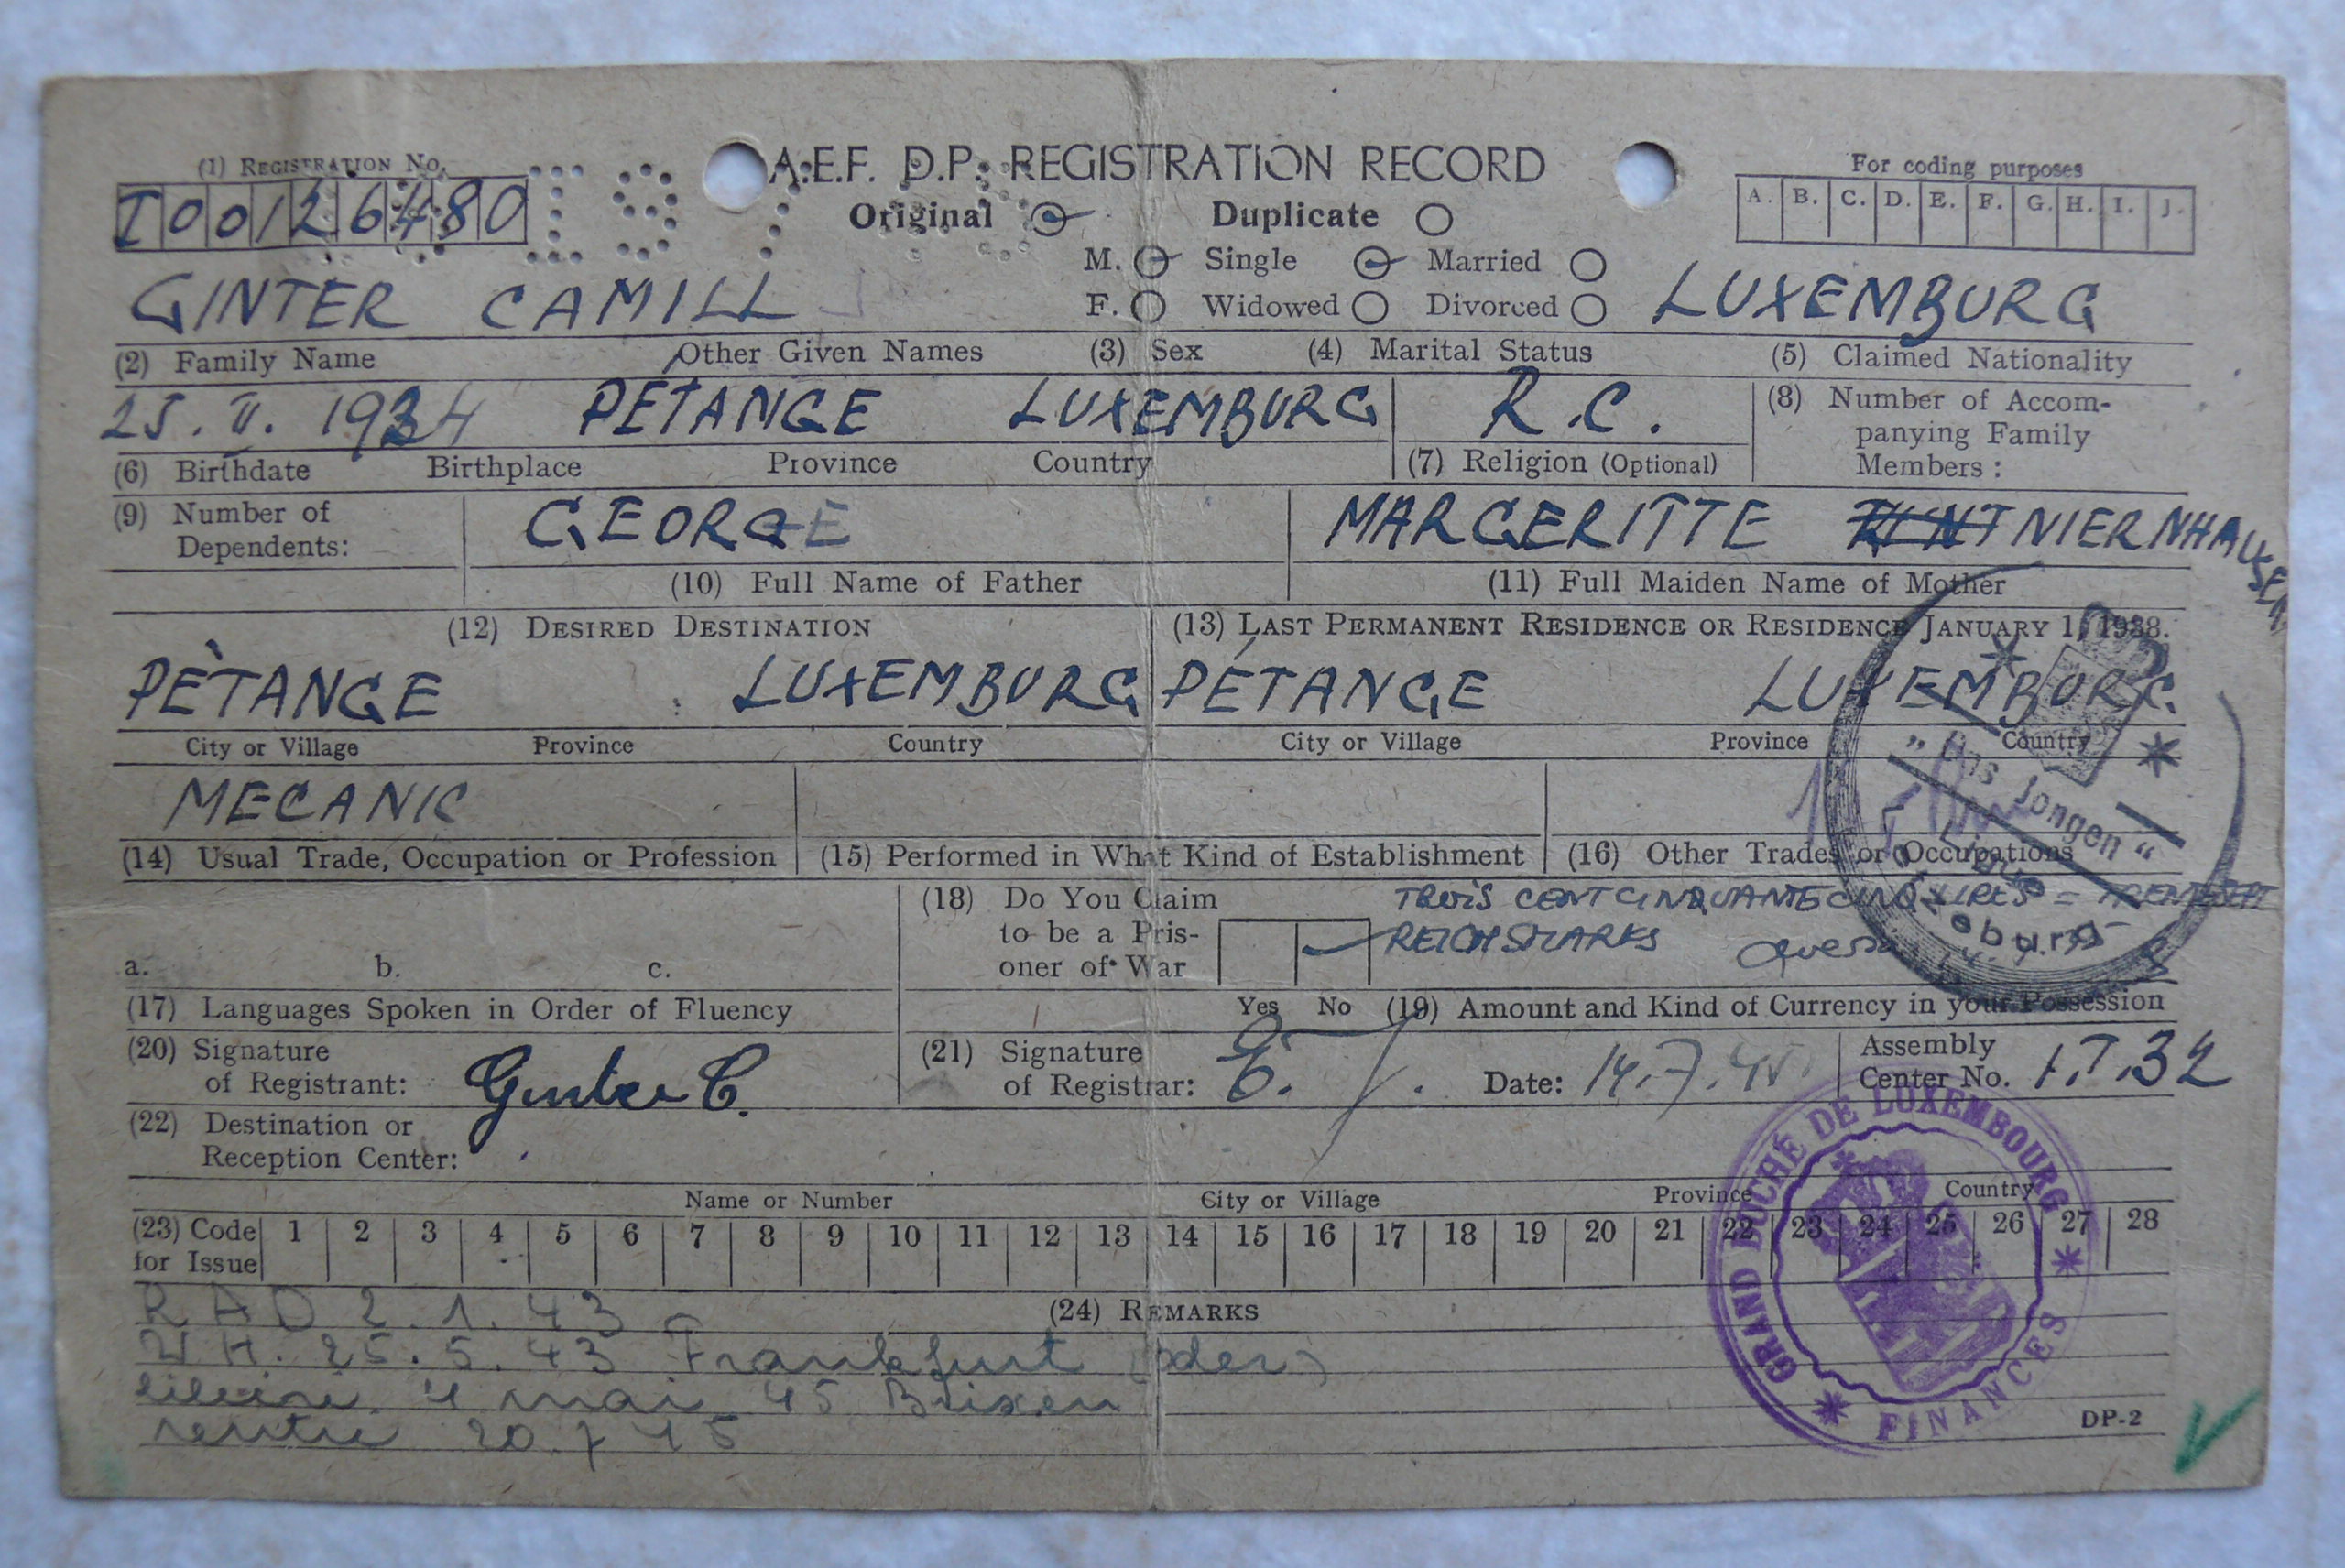 (1) REGISTRATION NO.
A.E.F. D.P. REGISTRATION RECORD
For coding purposes
I 0 0 1 2 6 4 8 0
Original Duplicate
A. B. C. D. E. F. G. H. I. J.
M. Single Married
GINTER CAMILL
F. Widowed Divorced
LUXEMBURG
(2) Family Name Other Given Names (3) Sex (4) Marital Status (5) Claimed Nationality
25. II. 1924 PÉTANGE LUXEMBURG R.C.
(8) Number of Accom-
panying Family
Members:
(6) Birthdate Birthplace Province Country (7) Religion (Optional)
(9) Number of
Dependents:
GEORGE MARGERITTE NIERNHAUSEN
(10) Full Name of Father (11) Full Maiden Name of Mother
(12) DESIRED DESTINATION (13) LAST PERMANENT RESIDENCE OR RESIDENCE JANUARY 1, 1938.
PÈTANGE LUXEMBURG PÉTANGE LUXEMBURG.
City or Village Province Country City or Village Province Country
MECANIC
(14) Usual Trade, Occupation or Profession (15) Performed in What Kind of Establishment (16) Other Trades or Occupations
„Ons Jongen“
(18) Do You Claim
to be a Pris-
oner of War
TROIS CENT CINQUANTE CINQ LIRES = TRENTE SEPT
REICHSMARKS
a. b. c.
Yes No
(17) Languages Spoken in Order of Fluency
(19) Amount and Kind of Currency in your Possession
(20) Signature
of Registrant: Ginter C.
(21) Signature
of Registrar: Date: 14.7.45
Assembly
Center No. I.T.32
(22) Destination or
Reception Center:
Name or Number City or Village Province Country
(23) Code
for Issue
1 2 3 4 5 6 7 8 9 10 11 12 13 14 15 16 17 18 19 20 21 22 23 24 25 26 27 28
(24) REMARKS
RAD 2.1.43
W.H. 25.5.43 Frankfurt (oder)
4 mai 45 Brixen
rentré 20.7 45
GRAND DUCHÉ DE LUXEMBOURG
FINANCES
DP-2